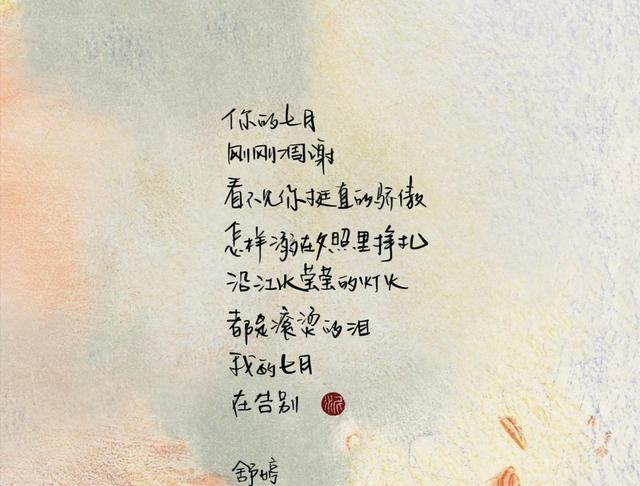 你的七月
刚刚凋谢
看不见你挺直的骄傲
怎样溺在夕照里挣扎
沿江水莹莹的灯火
都是滚烫的泪
我的七月
在告别
舒婷